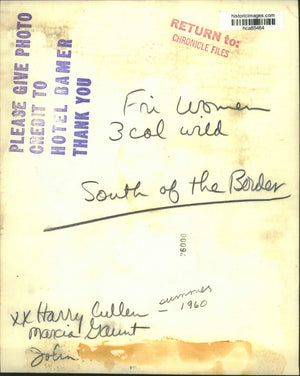 historicimages.com
hca65464
RETURN to:
CHRONICLE FILES
PLEASE GIVE PHOTO
CREDIT TO
HOTEL BAMER
THANK YOU
Fri Women
3 col wild
South of the Border
76000
xx Harry Cullen
Marcia Gaunt
John
summer
1960